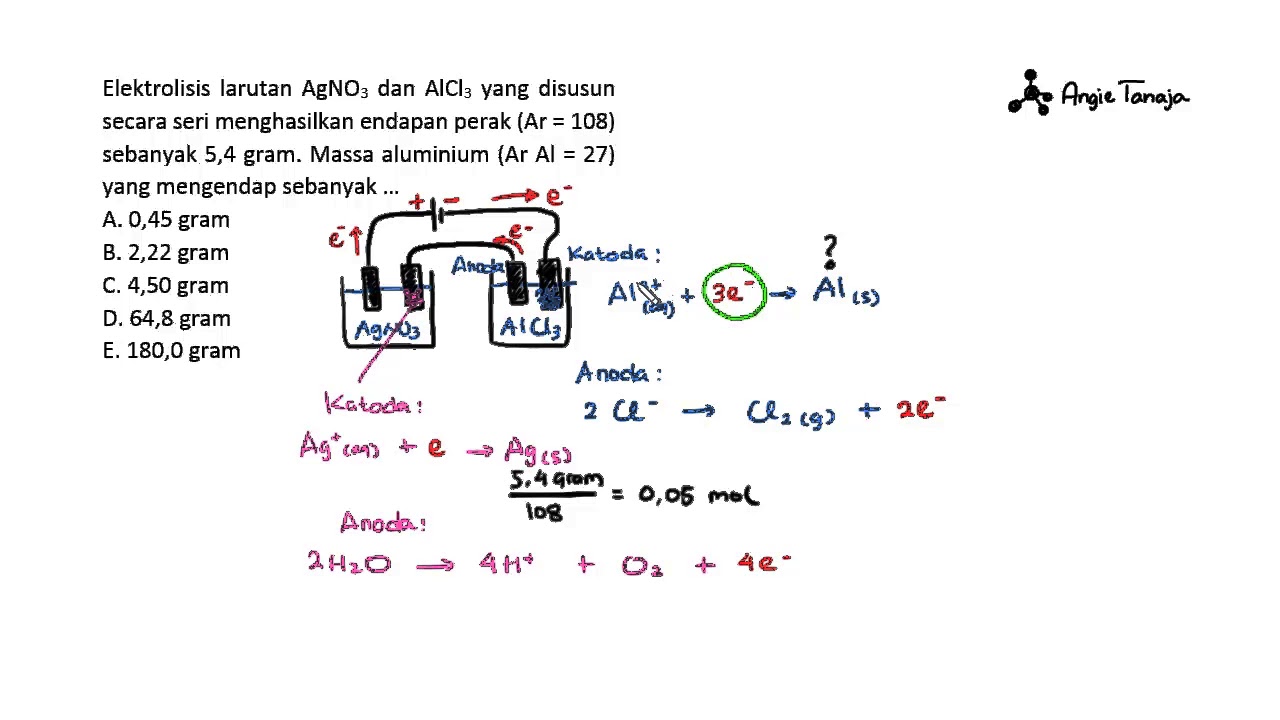 Elektrolisis larutan AgNO₃ dan AlCl₃ yang disusun
secara seri menghasilkan endapan perak (Ar = 108)
sebanyak 5,4 gram. Massa aluminium (Ar Al = 27)
yang mengendap sebanyak ...
A. 0,45 gram
B. 2,22 gram
C. 4,50 gram
D. 64,8 gram
E. 180,0 gram
Angie Tanaja
+ − → e⁻
e⁻ ↑
e⁻
Anoda
AgNO₃
AlCl₃
Katoda :
?
Al³⁺(aq) + 3e⁻ → Al(s)
Anoda :
2 Cl⁻ → Cl₂(g) + 2e⁻
Katoda :
Ag⁺(aq) + e → Ag(s)
5,4 gram
108
= 0,05 mol
Anoda :
2H₂O → 4H⁺ + O₂ + 4e⁻